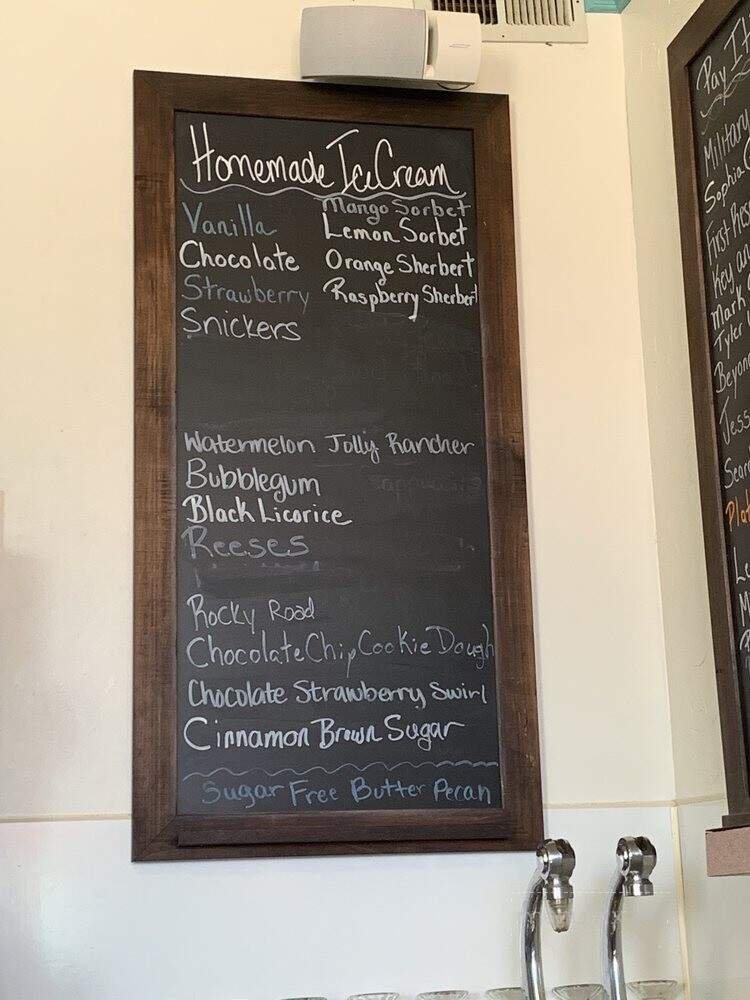 Homemade Ice Cream
Vanilla
Chocolate
Strawberry
Snickers
Mango Sorbet
Lemon Sorbet
Orange Sherbert
Raspberry Sherbert
Watermelon Jolly Rancher
Bubblegum
Black Licorice
Reeses
Rocky Road
Chocolate Chip Cookie Dough
Chocolate Strawberry Swirl
Cinnamon Brown Sugar
Sugar Free Butter Pecan
Pay It
Military
Sophia
First
Key an
Mark
Tyler
Beyon
Jess